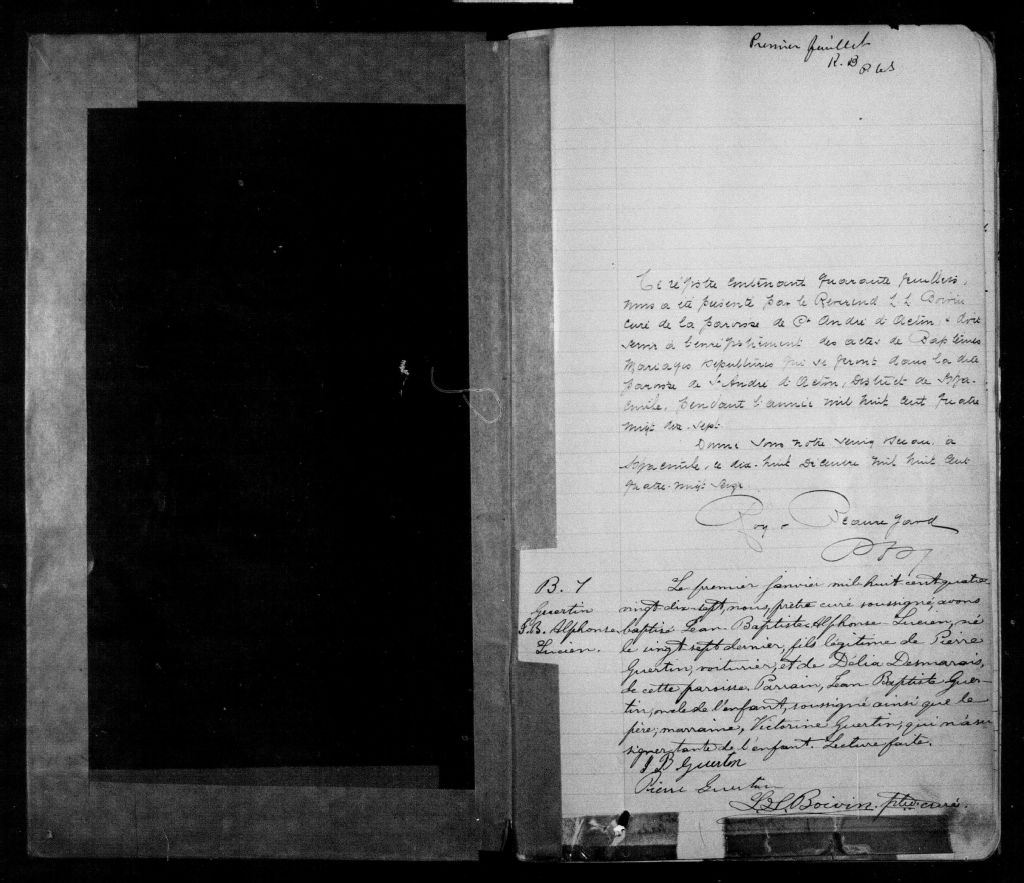 Premier feuillet
R. B
Ce régistre contenant quarante feuillets,
nous a été présenté par le Révérend Boivin
curé de la paroisse de St André d'Acton, devant
servir à l'enrégistrement des actes de Baptêmes
Mariages & Sépultures qui se feront dans la dite
paroisse de St André d'Acton, District de St Hya-
cinthe, pendant l'année mil huit cent quatre
vingt dix-sept.
Donné sous notre seing & sceau, à
St Hyacinthe, ce dix-huit Décembre mil huit cent
quatre-vingt seize
Roy & Beauregard
B. 1
Guertin
J.B. Alphonse
Lucien.
Le premier janvier mil huit cent quatre
vingt-dix-sept, nous, prêtre curé soussigné, avons
baptisé Jean-Baptiste-Alphonse-Lucien, né
le vingt sept dernier, fils légitime de Pierre
Guertin, voiturier, et de Délia Desmarais,
de cette paroisse. Parrain, Jean-Baptiste Guer-
tin, oncle de l'enfant, soussigné ainsi que le
père; marraine, Victorine Guertin, qui n'a su
signer, tante de l'enfant. Lecture faite.
J B Guertin
Pierre Guertin
Boivin, ptre curé.